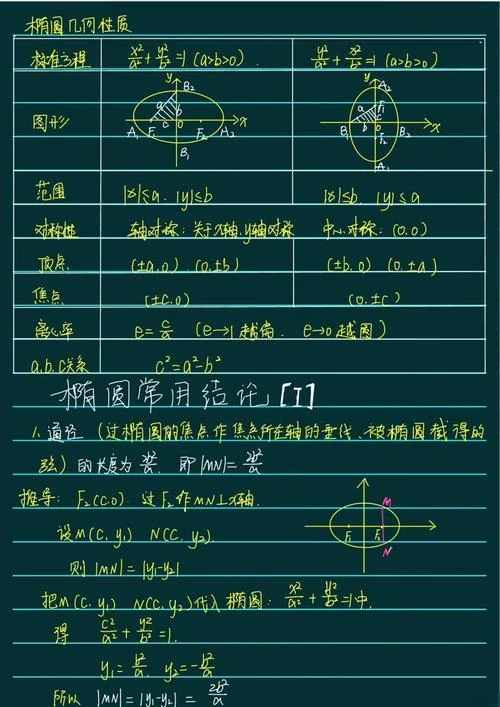 椭圆几何性质
标准方程 x²/a² + y²/b² = 1 (a>b>0). y²/a² + x²/b² = 1 (a>b>0)
图形
y B₂ a b A₁ F₁ c o F₂ A₂ x B₁
y A₂ a F₁ c B₁ b o B₂ x F₂ A₁
范围 |x|≤a. |y|≤b |x|≤b. |y|≤a
对称性 轴对称:关于x轴,y轴对称 中心对称:(0,0)
顶点 (±a,0). (0,±b) (±b,0) (0,±a)
焦点 (±c,0) (0,±c)
离心率 e=c/a (e→1越扁. e→0越圆)
a.b.c关系 c²=a²-b²
椭圆常用结论[I]
1. 通径 (过椭圆的焦点作焦点所在轴的垂线、被椭圆截得的
弦)的长度为2b²/a. 即|MN|=2b²/a
推导: F₂(c,0). 过F₂作MN⊥x轴.
M F₁ F₂ N
设M(c,y₁) N(c,y₂).
则|MN|=|y₁-y₂|
把M(c,y₁) N(c,y₂)代入椭圆: x²/a² + y²/b² =1中.
得 c²/a² + y²/b² =1.
y₁=b²/a. y₂=-b²/a
所以 |MN|=|y₁-y₂| = 2b²/a